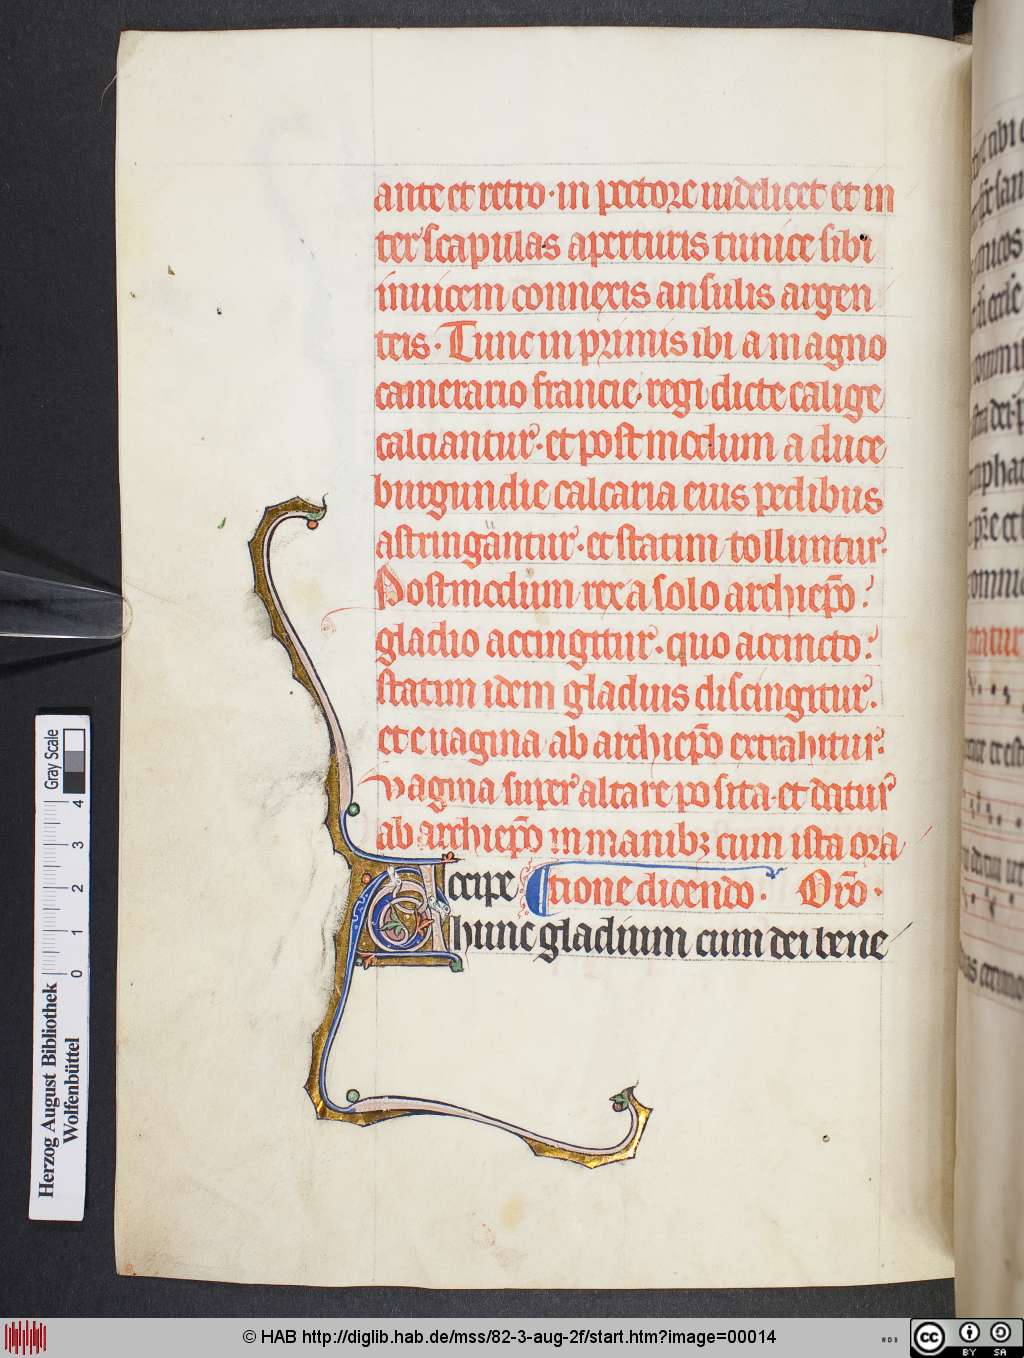 ante et retro· in pectore uidelicet et in
ter scapulas aperturis tunice sibi
inuicem connexis ansulis argen
teis· Tunc in primis ibi a magno
camerario francie· regi dicte calige
calciantur· et postmodum a duce
burgundie calcaria eius pedibus
astringantur· et statim tolluntur·
Postmodum rex a solo archiep̃o
gladio accingitur· quo accincto
statim idem gladius discingitur·
et e uagina ab archiep̃o extrahitur
vagina super altare posita· et datur
ab archiep̃o in manibꝫ cum ista ora
Accipe tione dicendo· Or̃o·
hunc gladium cum dei bene
Gray Scale
4 3 2 1 0
Herzog August Bibliothek
Wolfenbüttel
© HAB http://diglib.hab.de/mss/82-3-aug-2f/start.htm?image=00014
cc BY SA